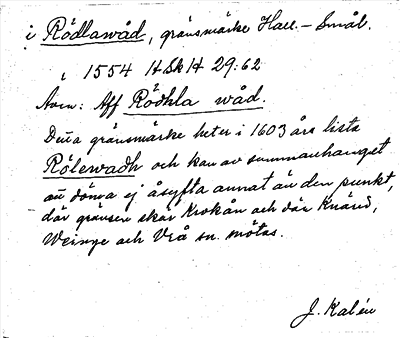 i Rödlawåd, gränsmärke Hall. – Smål.
i 1554 HSkH 29:62
Även: Aff Rödhla wåd.
Detta gränsmärke heter i 1603 års lista
Rölewadh och kan av sammanhanget
att döma ej åsyfta annat än den punkt,
där gränsen skär Krokån och där Knäred,
Weinge och Vrå sn. mötas.
J. Kalén